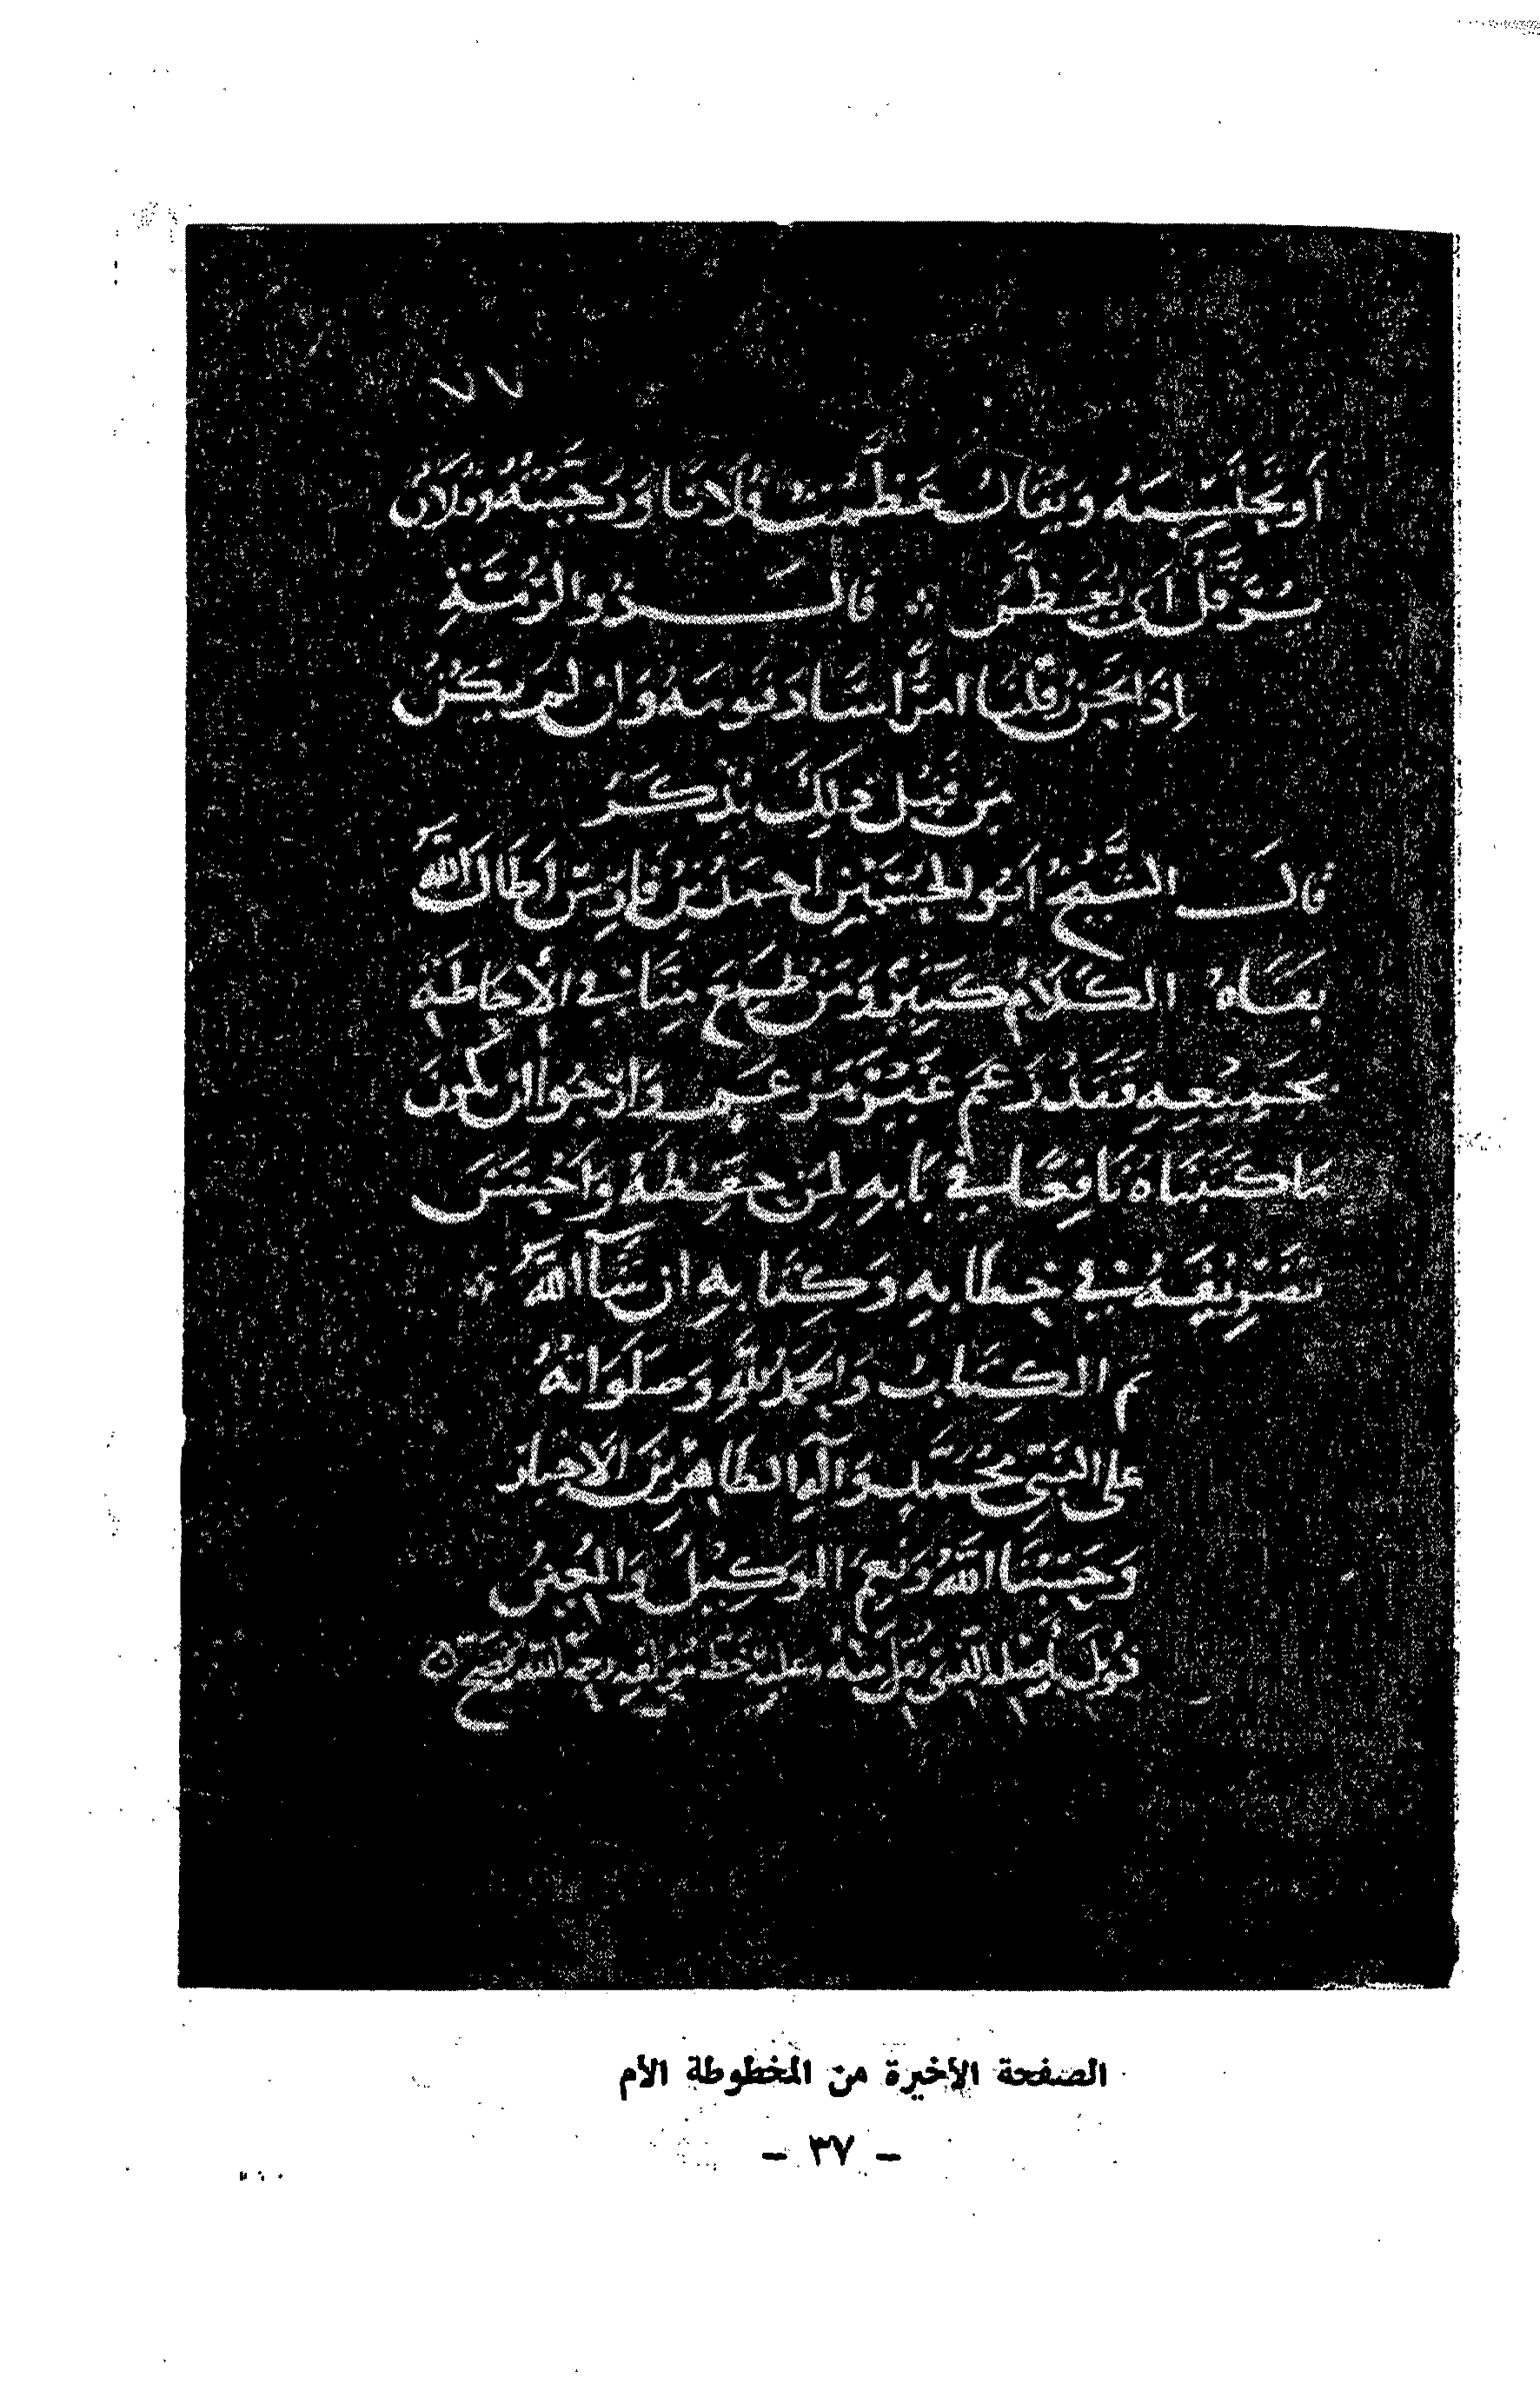 ٧٧
أو بجلسه ويقال عَظَّمْتُ فُلَانًا وَرَجَّبْتُهُ وفلان
يُرَفَّلُ أَي يُعَظَّمُ ∴ قَالَ ذُو الرُّمَّةِ
إِذَا نَحْنُ رَفَّلْنَا امرَأً سَادَ قَومَهُ وَإِن لَم يَكُنْ
مِن قَبْلِ ذلِكَ يُذْكَرُ
قَالَ الشَّيْخُ أَبُو الحُسَيْنِ أَحمَدُ بْنُ فَارِسٍ أَطَالَ اللَّهُ
بَقَاهُ الكَلَامُ كَثِيرٌ وَمَنْ طَمِعَ مِنَّا فِي الإِحَاطَةِ
بِجَمِيعِهِ فَقَدْ زَعَمَ غَيْرَ مَزعَمٍ وَأَرْجُو أَن يَكُونَ
مَا كَتَبْنَاهُ نَافِعًا فِي بَابِهِ لِمَنْ حَفِظَهُ وَأَحْسَنَ
تَصْرِيفَهُ فِي خِطَابِهِ وَكِتَابِهِ إِن شَآ اللَّهُ
تم الكِتَابُ وَالحَمْدُ لِلَّهِ وَصَلَوَاتُهُ
على النَّبِيِّ مُحَمَّدٍ وَآلِهِ الطَّاهِرِينَ الأَخيار
وَحَسْبُنَا اللَّهُ وَنِعْمَ الوَكِيلُ وَالمُعِينُ
قُوبِلَ بِأَصْلِهِ الَّذِي نُقِلَ مِنْهُ وعليه خَطُّ مؤلفه رحمه الله فصح
الصفحة الأخيرة من المخطوطة الأم
- ٣٧ -